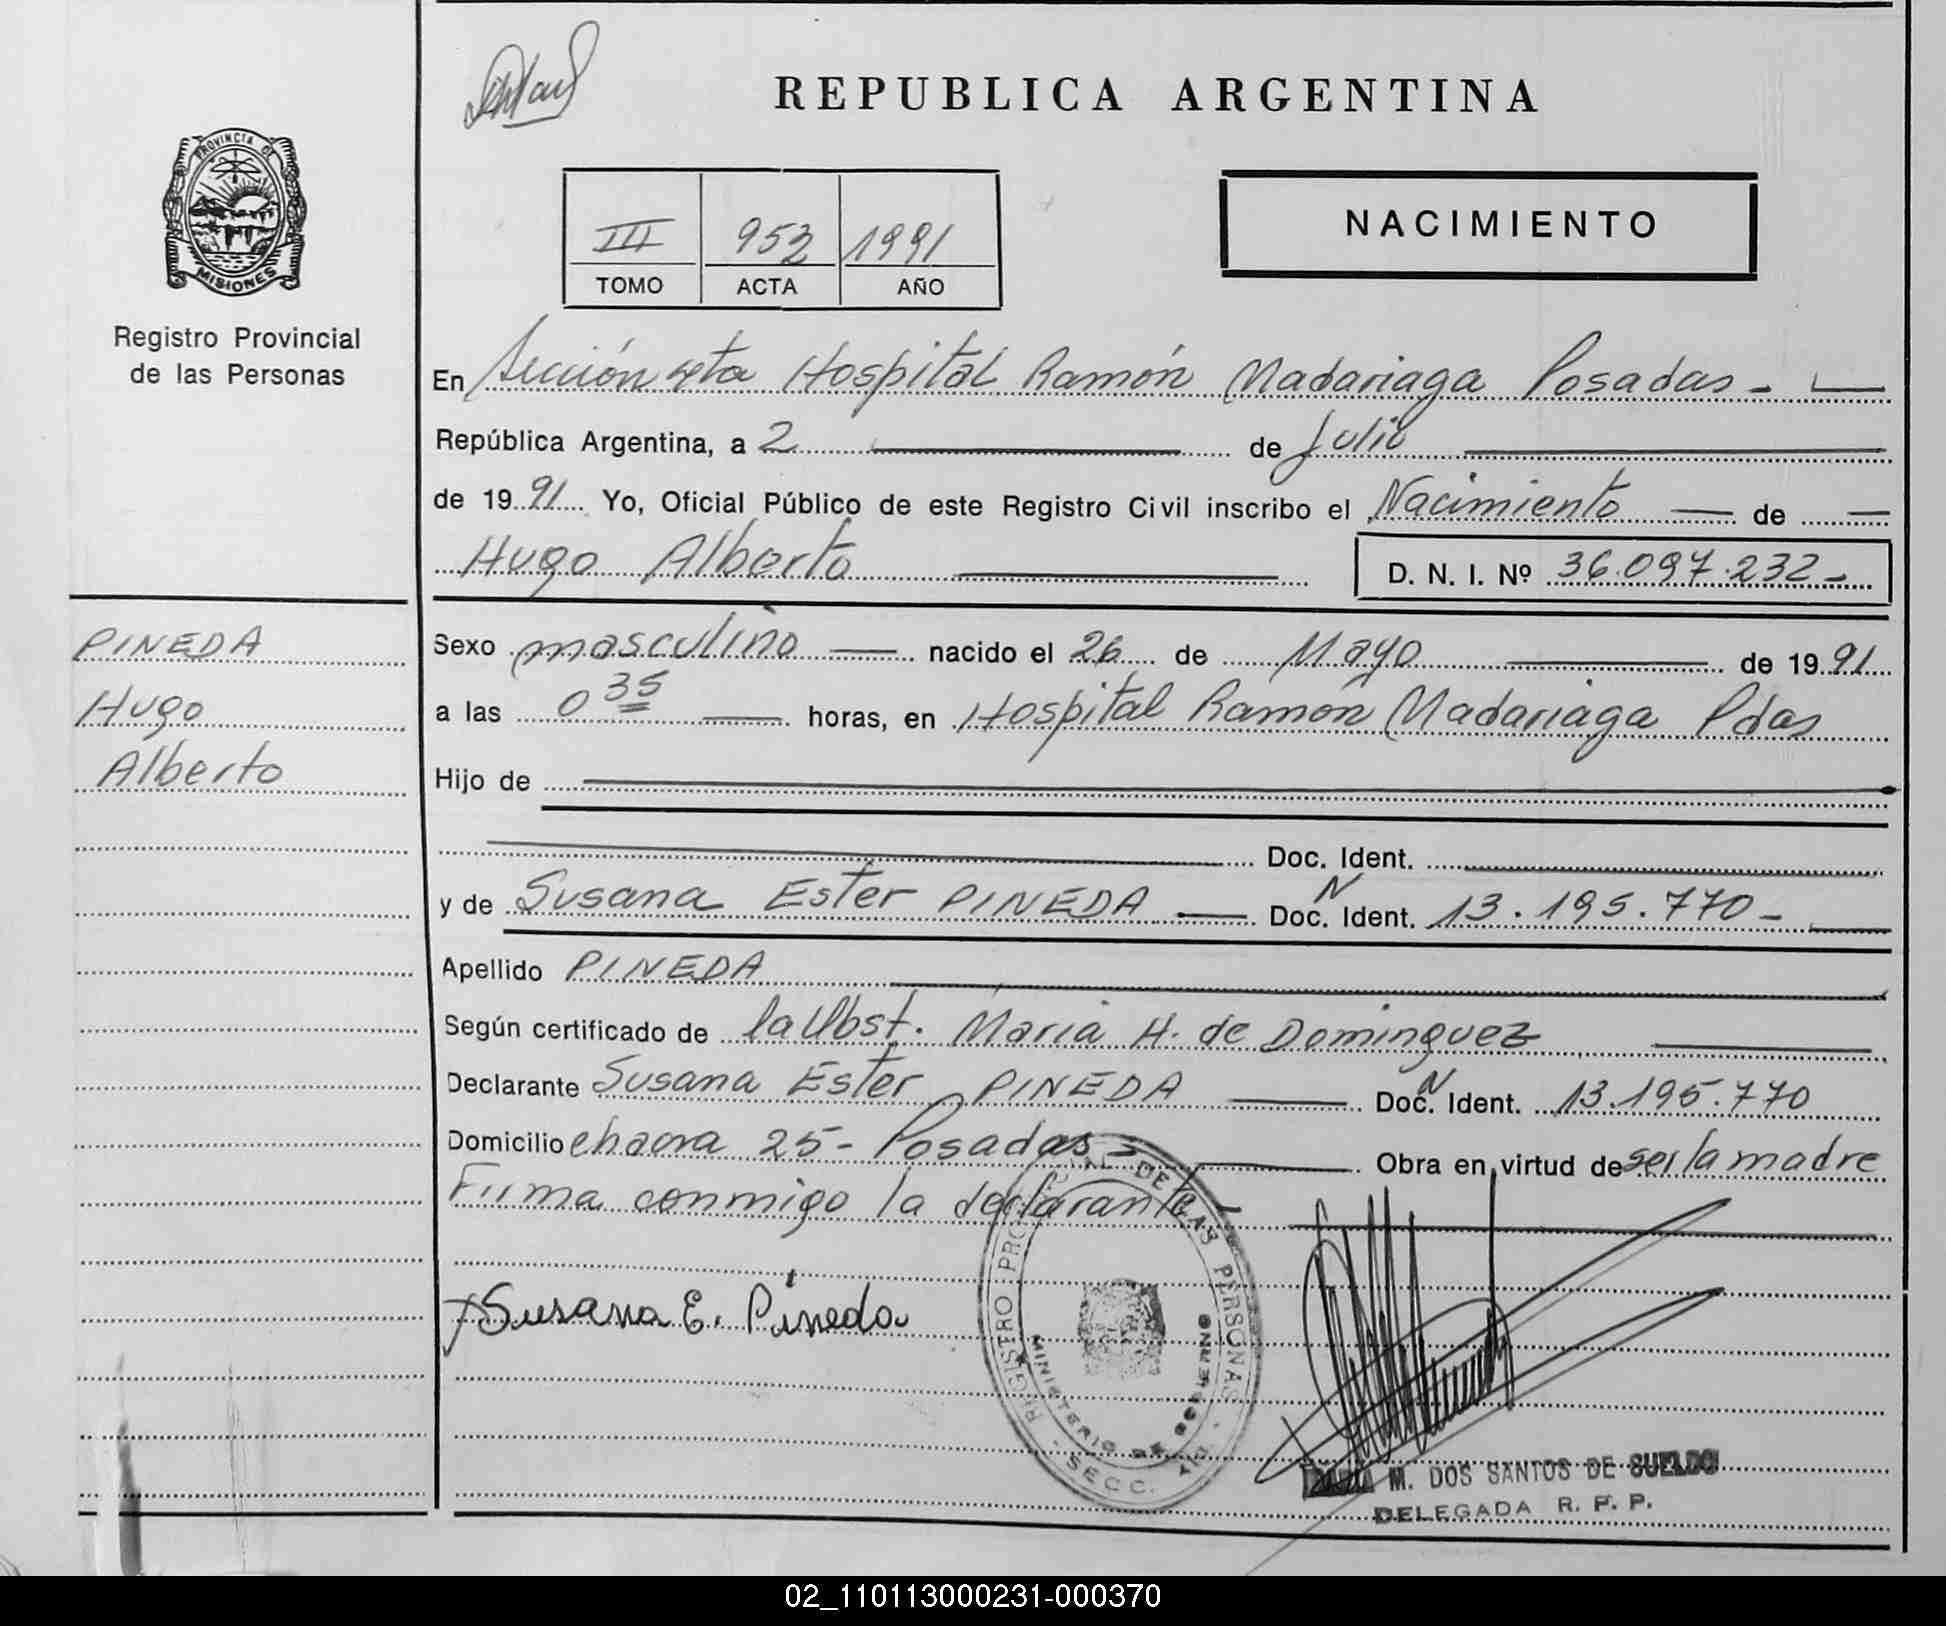 REPUBLICA ARGENTINA
PROVINCIA DE
MISIONES
Registro Provincial
de las Personas
III 953 1991
TOMO ACTA AÑO
NACIMIENTO
En Sección 4ta Hospital Ramón Madariaga Posadas -
República Argentina, a 2 de Julio
de 1991 Yo, Oficial Público de este Registro Civil inscribo el Nacimiento de
Hugo Alberto D. N. I. Nº 36.097.232-
PINEDA
Hugo
Alberto
Sexo masculino nacido el 26 de Mayo de 1991
a las 0 35 horas, en Hospital Ramón Madariaga Pdas
Hijo de
Doc. Ident.
y de Susana Ester PINEDA Doc. N Ident. 13.195.770-
Apellido PINEDA
Según certificado de la Obst. Maria H. de Dominguez
Declarante Susana Ester PINEDA Doc. N Ident. 13.195.770
Domicilio chacra 25- Posadas - Obra en virtud de ser la madre
Firma conmigo la declarante -
Susana E. Pineda
REGISTRO DE LAS PERSONAS
MINISTERIO DE GOBIERNO
SECC.
M. DOS SANTOS DE SUELDO
DELEGADA R. P. P.
02_110113000231-000370